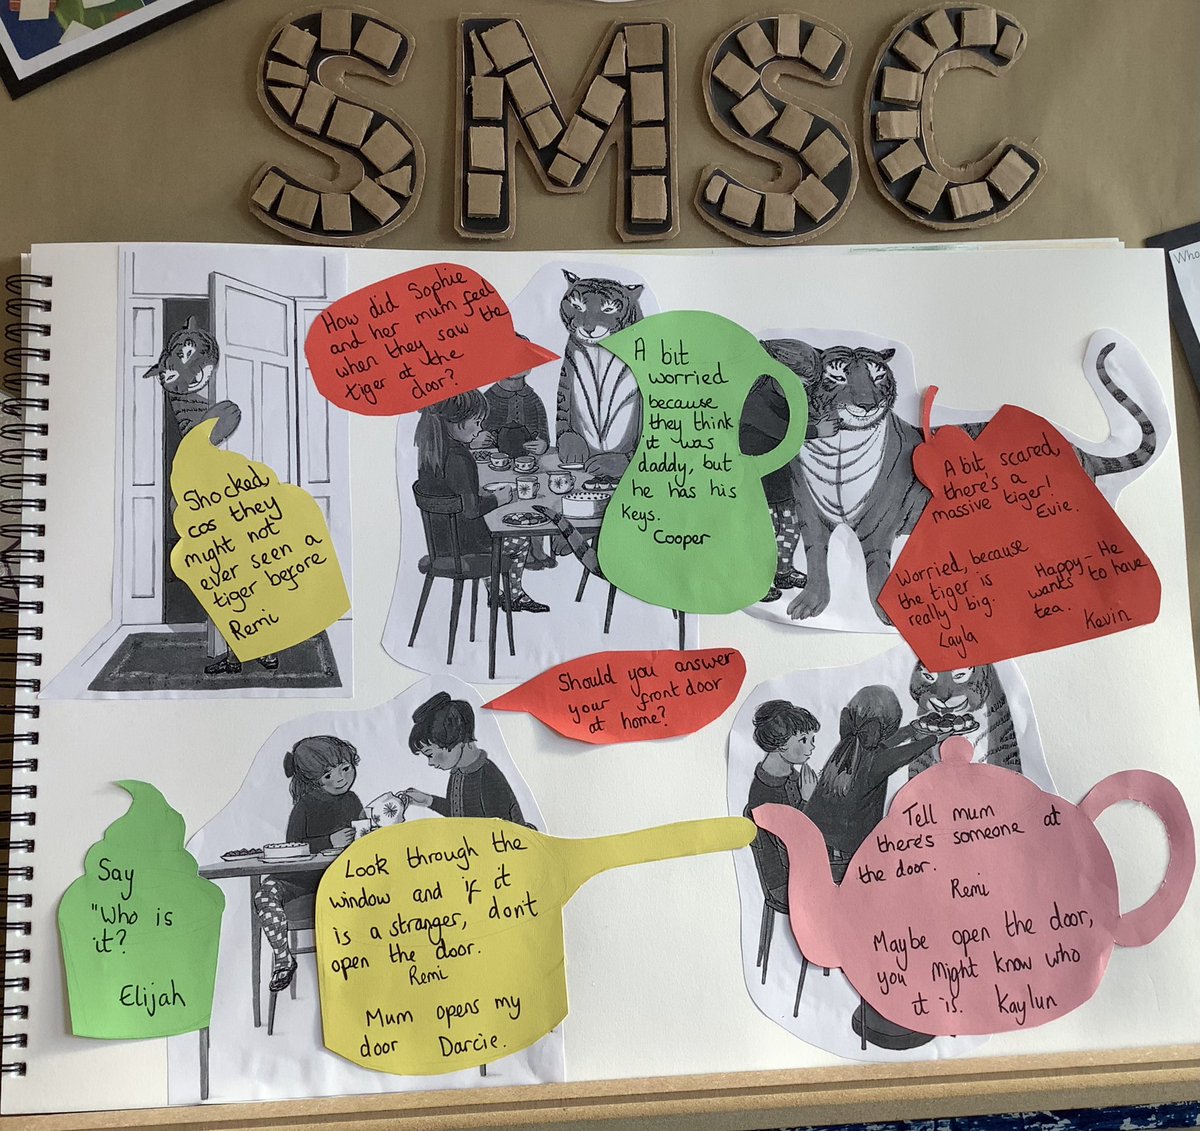 SMSC
Who
How did Sophie
and her mum feel
when they saw the
tiger at the
door?
Shocked
cos they
might not
ever seen a
tiger before
Remi
A bit
worried
because
they think
it was
daddy, but
he has his
keys.
Cooper
A bit scared
there's a
massive tiger!
Evie.
Worried, because
the tiger is
really big.
Layla
Happy - He
wants to have
tea.
Kevin
Should you answer
your front door
at home?
Say
"Who is
it?
Elijah
Look through the
window and if it
is a stranger, don't
open the door.
Remi
Mum opens my
door Darcie.
Tell mum
there's someone at
the door.
Remi
Maybe open the door,
you might know who
it is. Kaylun